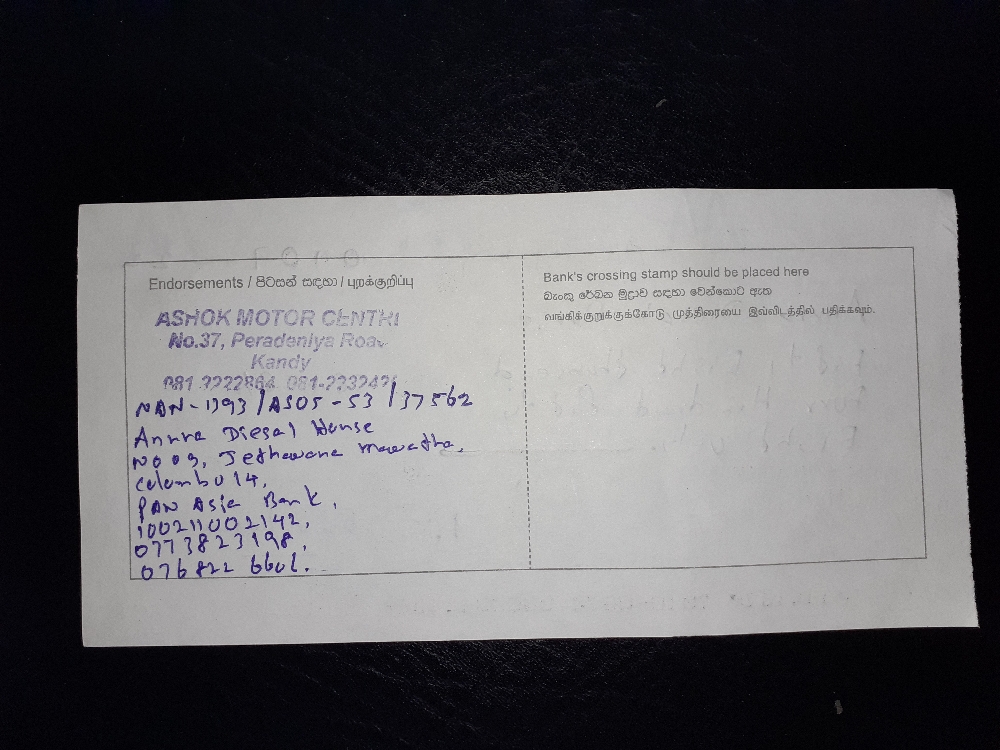 Endorsements / පිටසන් සඳහා / புறக்குறிப்பு
ASHOK MOTOR CENTR
No.37, Peradeniya Roa
Kandy
081-2222864, 081-223242
NAN-1393/ASOS-53/37562
Anura Diesal House
NO 09, Jethawana mawatha,
Colombo 14,
PAN Asia Bank,
100211002142,
0773823198,
076 822 6601.
Bank's crossing stamp should be placed here
බැංකු රේඛන මුද්‍රාව සඳහා වෙන්කොට ඇත
வங்கிக்குறுக்குக்கோடு முத்திரையை இவ்விடத்தில் பதிக்கவும்.